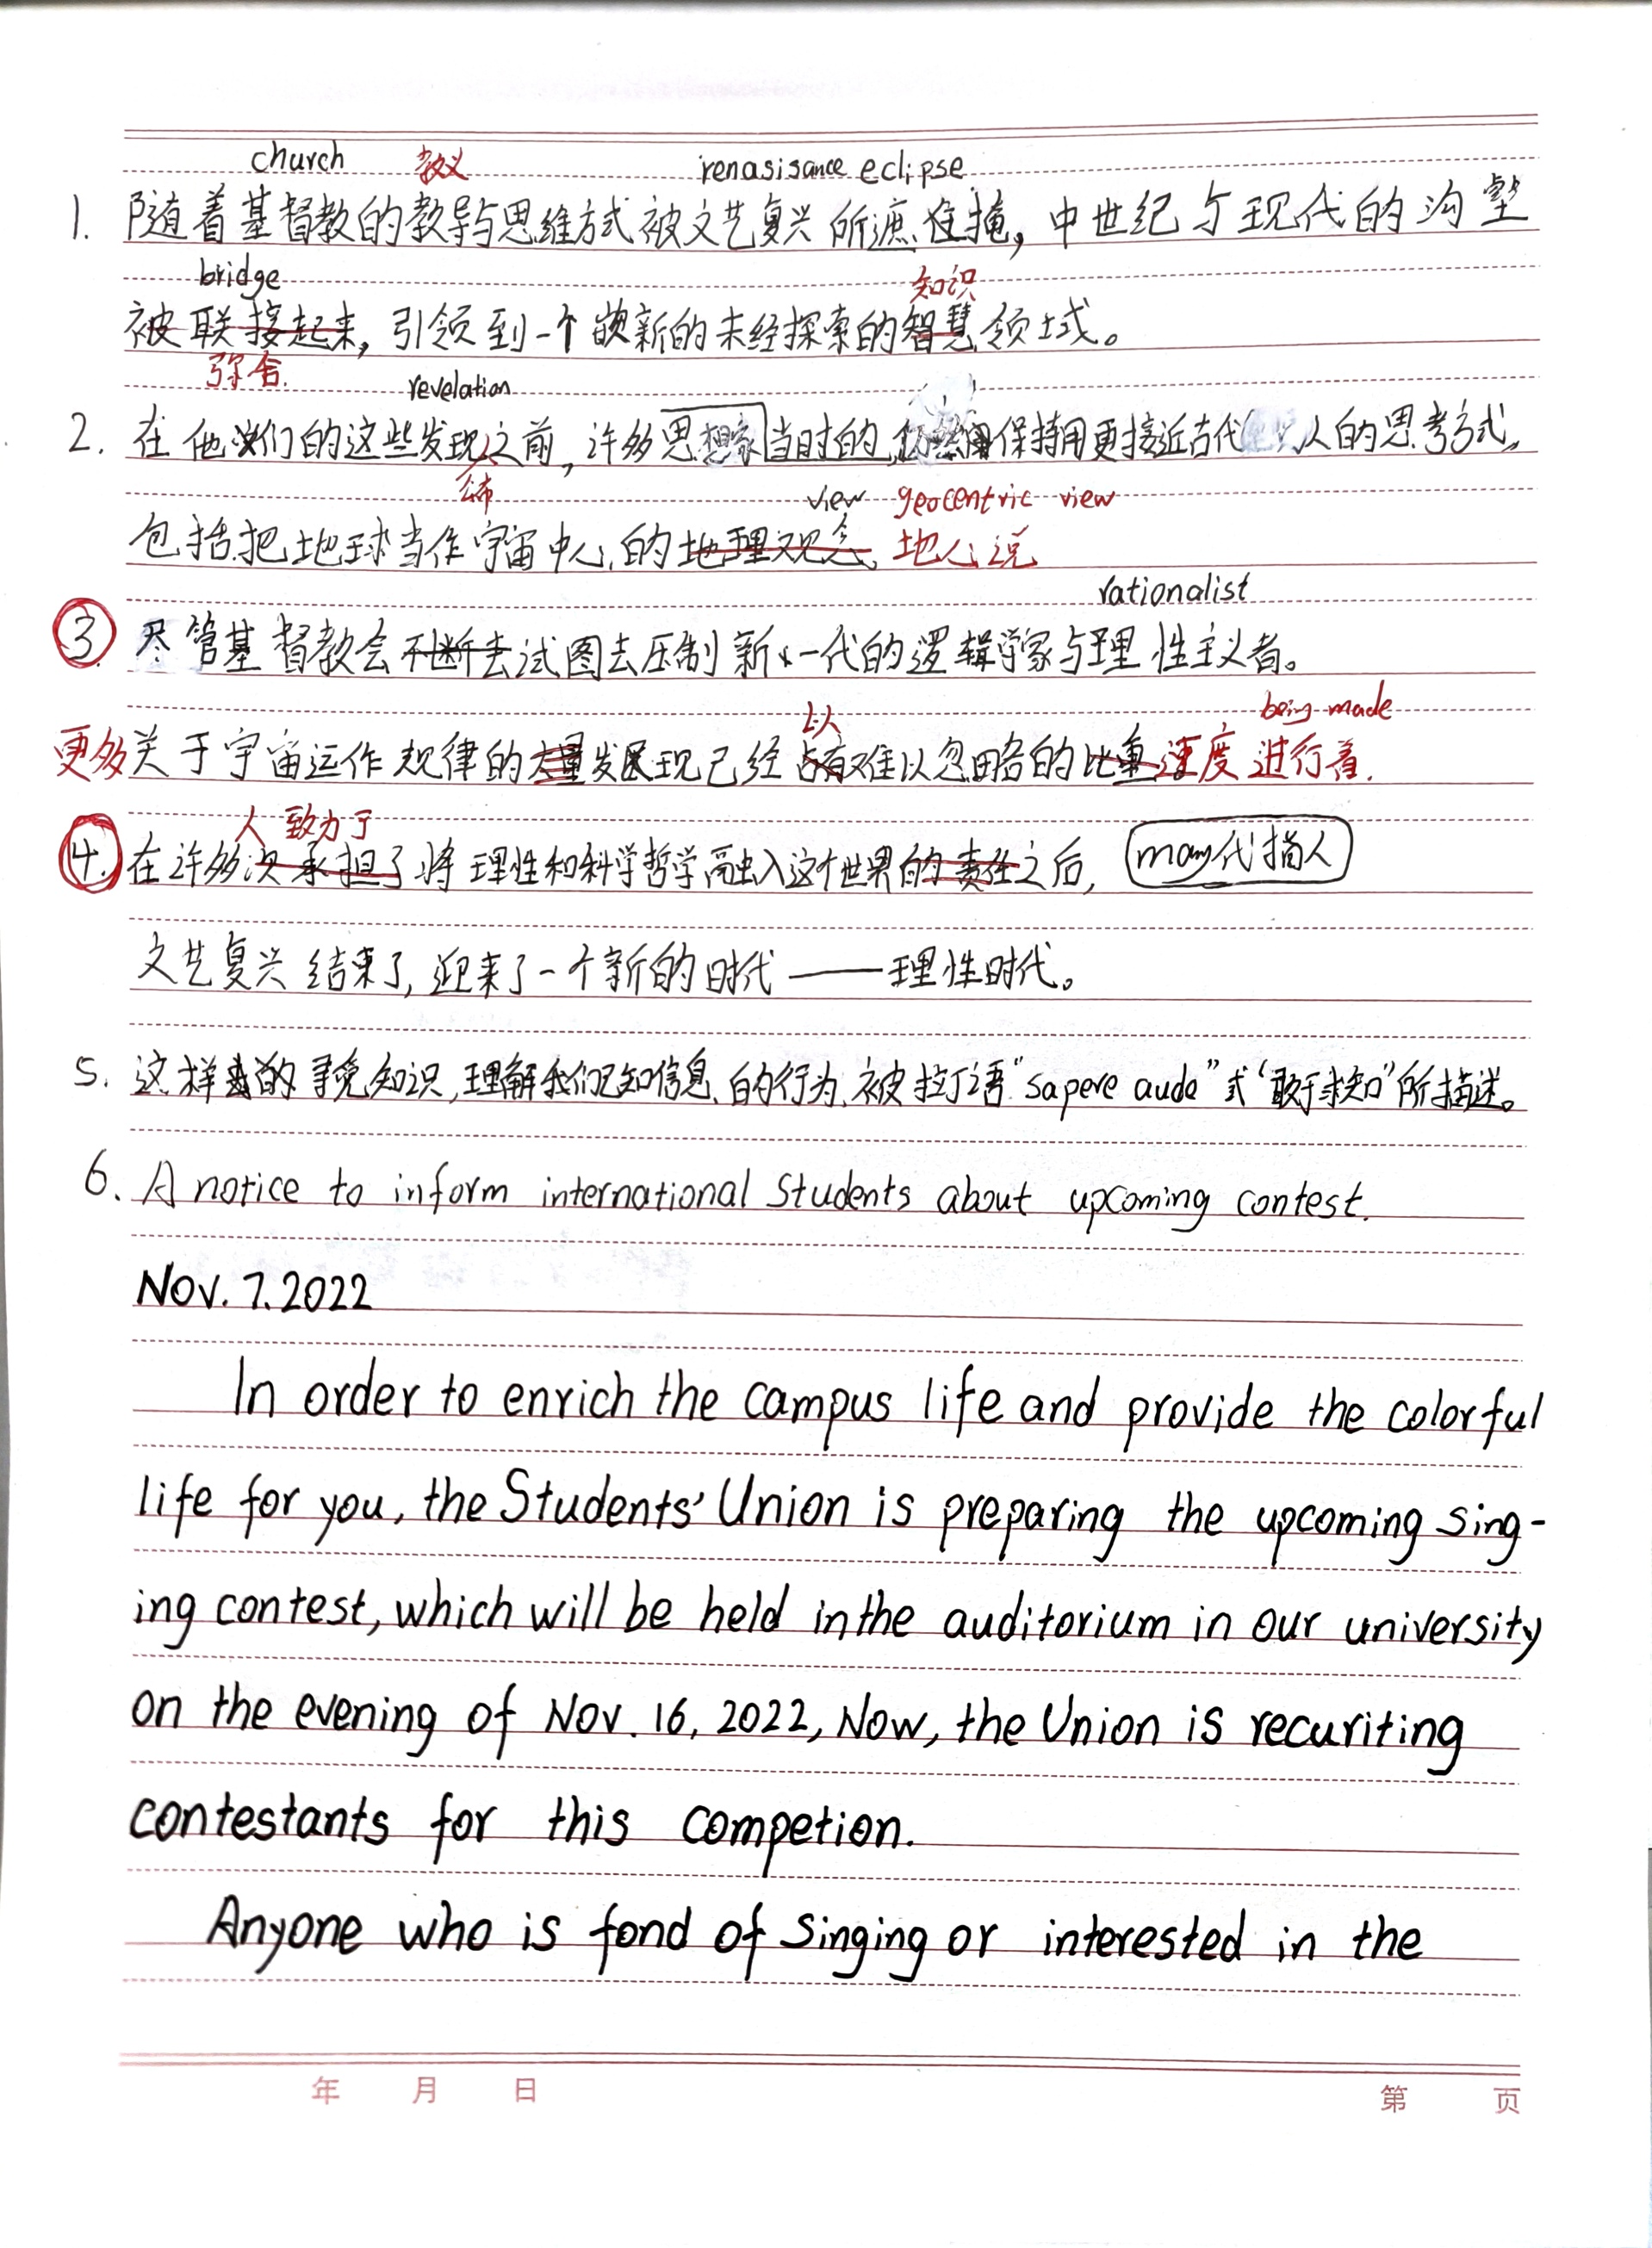 church 教义 renasisance eclipse
1. 随着基督教的教导与思维方式被文艺复兴所遮掩，中世纪与现代的沟壑
bridge 知识
被联接起来，引领到一个新的未经探索的智慧领域。
弥合. revelation
2. 在他们的这些发现之前，许多思想家当时的保持用更接近古代人的思考方式。
公布 view geocentric view
包括把地球当作宇宙中心的地理观念 地心说
rationalist
3. 尽管基督教会不断去试图去压制新一代的逻辑学家与理性主义者。
以 being made
更多关于宇宙运作规律的大量发现已经占有难以忽略的比重速度进行着.
人 致力于
4. 在许多次承担了将理性和科学哲学融入这个世界的责任之后, many代指人
文艺复兴结束了, 迎来了一个新的时代——理性时代。
5. 这样的寻觅知识,理解我们已知信息的行为,被拉丁语“sapere aude”或“敢于求知”所描述。
6. A notice to inform international students about upcoming contest.
Nov. 7. 2022
In order to enrich the campus life and provide the colorful
life for you, the Students' Union is preparing the upcoming sing-
ing contest, which will be held in the auditorium in our university
on the evening of Nov. 16, 2022, Now, the Union is recuriting
contestants for this competion.
Anyone who is fond of singing or interested in the
年 月 日 第 页